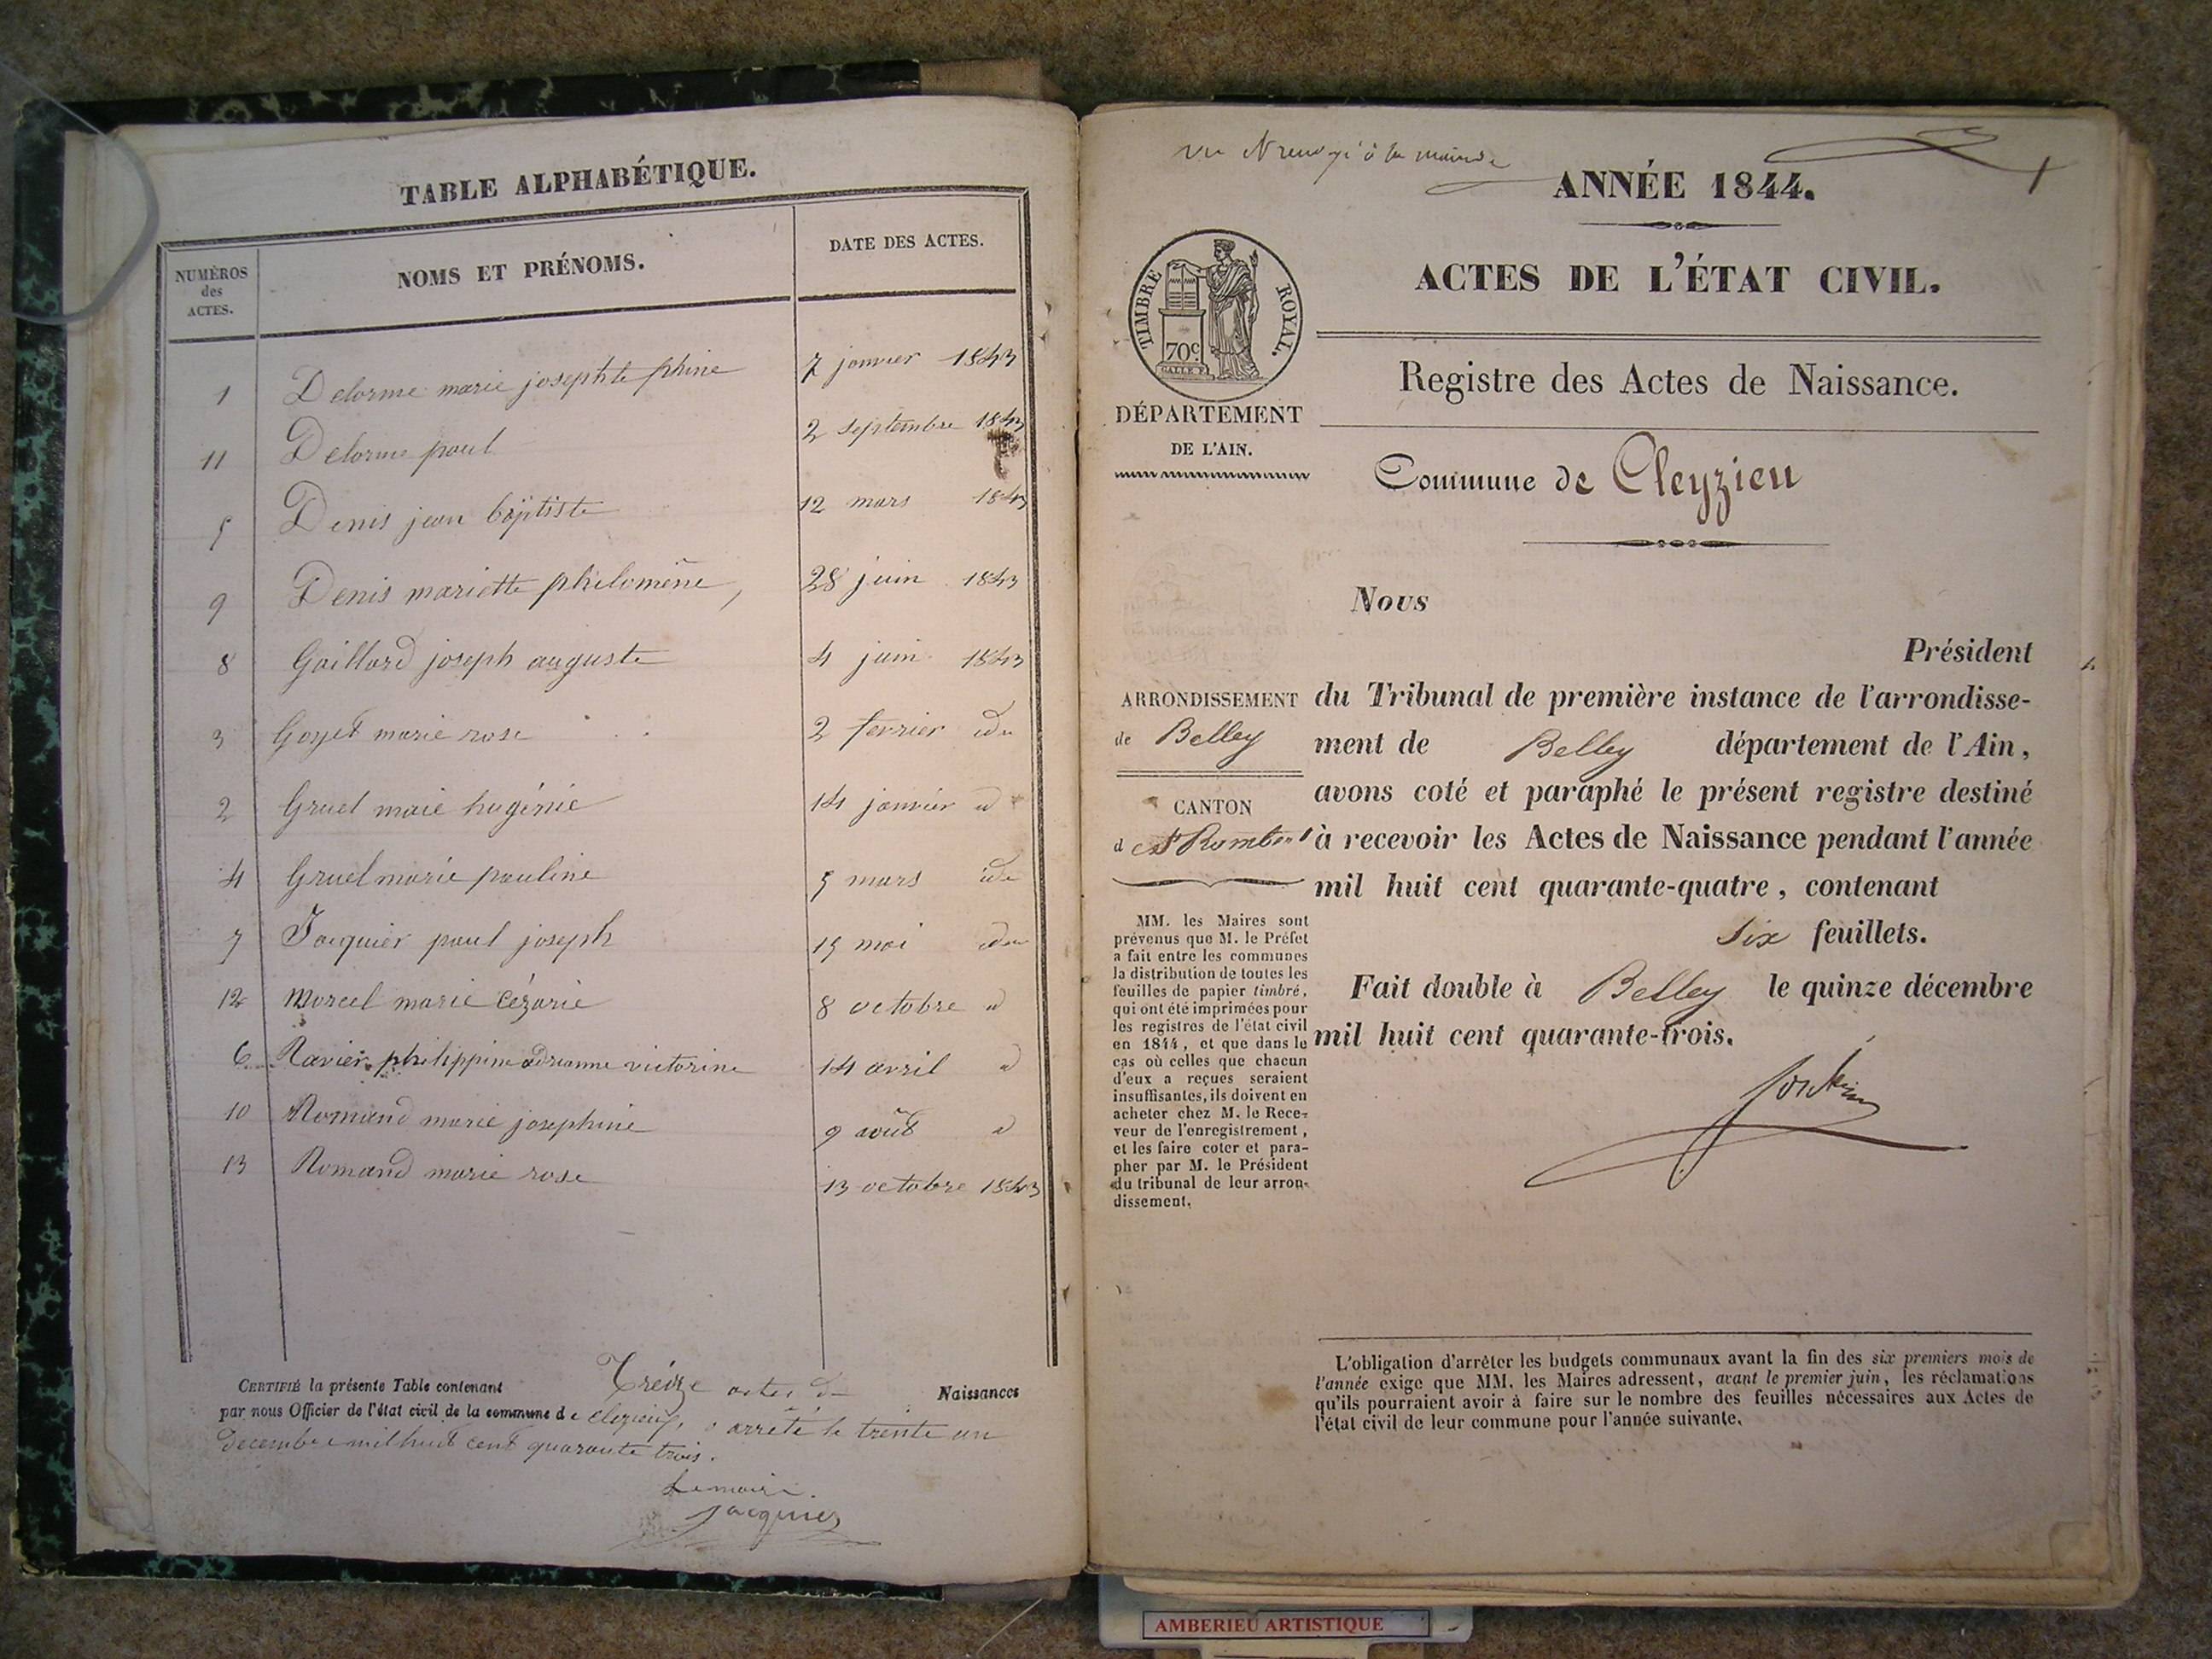 TABLE ALPHABÉTIQUE.
NUMÉROS des ACTES.
NOMS ET PRÉNOMS.
DATE DES ACTES.
1 Delorme marie josephte phine 7 janvier 1843
11 Delorme paul 2 septembre 1843
5 Denis jean baptiste 12 mars 1843
9 Denis mariette philomène, 28 juin 1843
8 Gaillard joseph auguste 4 juin 1843
3 Goyet marie rose 2 fevrier idem
2 Gruel maie hugénie 14 janvier id
4 Gruel marie pauline 5 mars ide
7 Jacquier paul joseph 15 mai idem
12 Morcel marie Cézarie 8 octobre id
6 Ravier philippine adrianne victorine 14 avril id
10 Romand marie josephine 9 août id
13 Romand marie rose 13 octobre 1843
CERTIFIÉ la présente Table contenant Treize actes de Naissances
par nous Officier de l'état civil de la commune de Cleyzieu, arrêté le trente un
decembre mil huit cent quarante trois.
Le maire.
Jacquier
vu
ANNÉE 1844.
ACTES DE L'ÉTAT CIVIL.
TIMBRE ROYAL.
70c
GALLE F.
Registre des Actes de Naissance.
DÉPARTEMENT
DE L'AIN.
Commune de Cleyzieu
Nous
Président
ARRONDISSEMENT
de Belley
CANTON
de St Rambert
du Tribunal de première instance de l'arrondisse-
ment de Belley département de l'Ain,
avons coté et paraphé le présent registre destiné
à recevoir les Actes de Naissance pendant l'année
mil huit cent quarante-quatre, contenant
six feuillets.
Fait double à Belley le quinze décembre
mil huit cent quarante-trois.
MM. les Maires sont
prévenus que M. le Préfet
a fait entre les communes
la distribution de toutes les
feuilles de papier timbré,
qui ont été imprimées pour
les registres de l'état civil
en 1844, et que dans le
cas où celles que chacun
d'eux a reçues seraient
insuffisantes, ils doivent en
acheter chez M. le Rece-
veur de l'enregistrement,
et les faire coter et para-
pher par M. le Président
du tribunal de leur arron-
dissement.
L'obligation d'arrêter les budgets communaux avant la fin des six premiers mois de
l'année exige que MM. les Maires adressent, avant le premier juin, les réclamations
qu'ils pourraient avoir à faire sur le nombre des feuilles nécessaires aux Actes de
l'état civil de leur commune pour l'année suivante.
AMBERIEU ARTISTIQUE